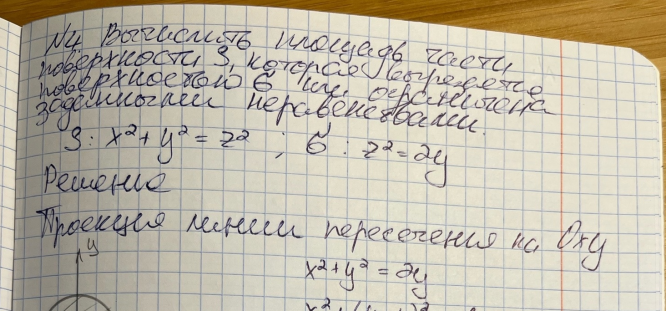 №4 Вычислить площадь части
поверхности З, которая вырезается
поверхностью б или ограничена
заданными неравенствами.
З: x² + y² = z² ; б : z² = 2y
Решение
Проекция линии пересечения на Oxy
y
x² + y² = 2y